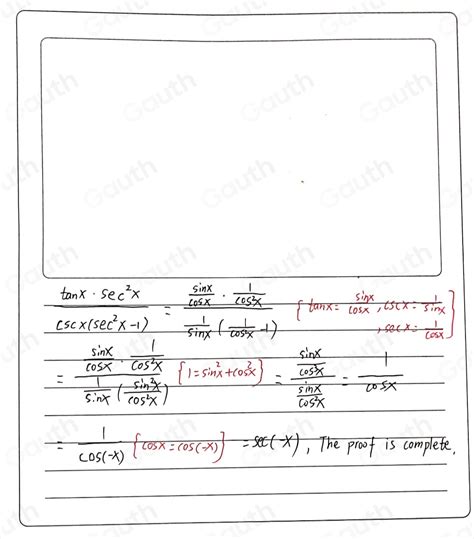 tanx · sec²x / cscx(sec²x-1) = sinx/cosx · 1/cos²x / 1/sinx (1/cos²x -1) {tanx = sinx/cosx, cscx = 1/sinx
, secx = 1/cosx}
= sinx/cosx · 1/cos²x / 1/sinx (sin²x/cos²x) {1=sin²x+cos²x} = sinx/cos³x / sinx/cos²x = 1/cosx
= 1/cos(-x) {cosx = cos(-x)} = sec(-x), The proof is complete.
Gauth